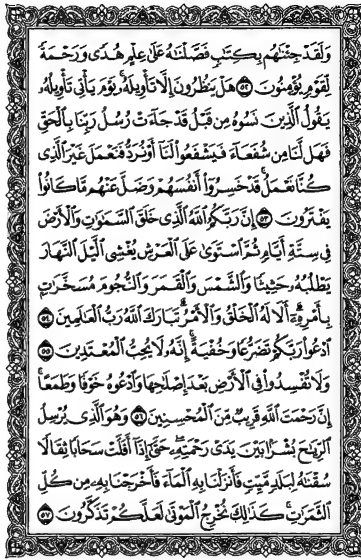 وَلَقَدْ جِئْنَٰهُم بِكِتَٰبٍ فَصَّلْنَٰهُ عَلَىٰ عِلْمٍ هُدًى وَرَحْمَةً
لِّقَوْمٍ يُؤْمِنُونَ ٥٢ هَلْ يَنظُرُونَ إِلَّا تَأْوِيلَهُۥ يَوْمَ يَأْتِى تَأْوِيلُهُۥ
يَقُولُ ٱلَّذِينَ نَسُوهُ مِن قَبْلُ قَدْ جَآءَتْ رُسُلُ رَبِّنَا بِٱلْحَقِّ
فَهَل لَّنَا مِن شُفَعَآءَ فَيَشْفَعُوا۟ لَنَآ أَوْ نُرَدُّ فَنَعْمَلَ غَيْرَ ٱلَّذِى
كُنَّا نَعْمَلُ قَدْ خَسِرُوٓا۟ أَنفُسَهُمْ وَضَلَّ عَنْهُم مَّا كَانُوا۟
يَفْتَرُونَ ٥٣ إِنَّ رَبَّكُمُ ٱللَّهُ ٱلَّذِى خَلَقَ ٱلسَّمَٰوَٰتِ وَٱلْأَرْضَ
فِى سِتَّةِ أَيَّامٍ ثُمَّ ٱسْتَوَىٰ عَلَى ٱلْعَرْشِ يُغْشِى ٱلَّيْلَ ٱلنَّهَارَ
يَطْلُبُهُۥ حَثِيثًا وَٱلشَّمْسَ وَٱلْقَمَرَ وَٱلنُّجُومَ مُسَخَّرَٰتٍۭ
بِأَمْرِهِۦٓ أَلَا لَهُ ٱلْخَلْقُ وَٱلْأَمْرُ تَبَارَكَ ٱللَّهُ رَبُّ ٱلْعَٰلَمِينَ ٥٤
ٱدْعُوا۟ رَبَّكُمْ تَضَرُّعًا وَخُفْيَةً إِنَّهُۥ لَا يُحِبُّ ٱلْمُعْتَدِينَ ٥٥
وَلَا تُفْسِدُوا۟ فِى ٱلْأَرْضِ بَعْدَ إِصْلَٰحِهَا وَٱدْعُوهُ خَوْفًا وَطَمَعًا
إِنَّ رَحْمَتَ ٱللَّهِ قَرِيبٌ مِّنَ ٱلْمُحْسِنِينَ ٥٦ وَهُوَ ٱلَّذِى يُرْسِلُ
ٱلرِّيَٰحَ بُشْرًۢا بَيْنَ يَدَىْ رَحْمَتِهِۦ حَتَّىٰٓ إِذَآ أَقَلَّتْ سَحَابًا ثِقَالًا
سُقْنَٰهُ لِبَلَدٍ مَّيِّتٍ فَأَنزَلْنَا بِهِ ٱلْمَآءَ فَأَخْرَجْنَا بِهِۦ مِن كُلِّ
ٱلثَّمَرَٰتِ كَذَٰلِكَ نُخْرِجُ ٱلْمَوْتَىٰ لَعَلَّكُمْ تَذَكَّرُونَ ٥٧